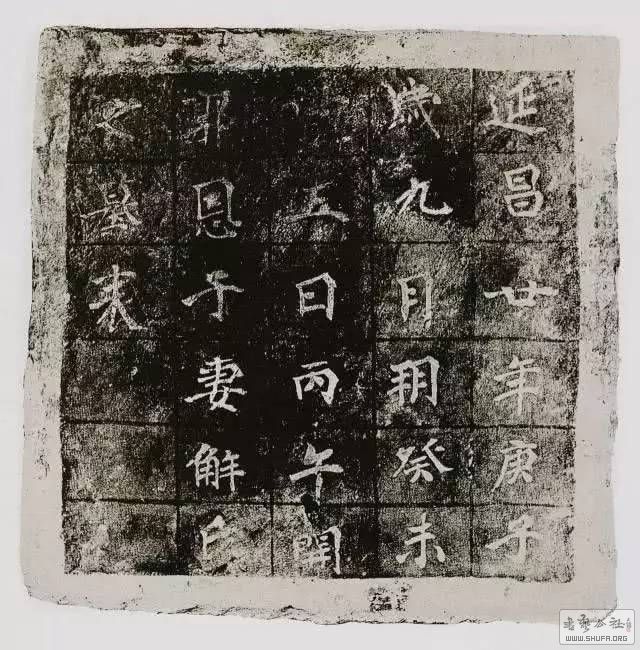 延昌廿年庚子
歲九月朔癸未
五日丙午開
耶恩子妻解氏
之墓表
书艺公社
WWW.SHUFA.ORG